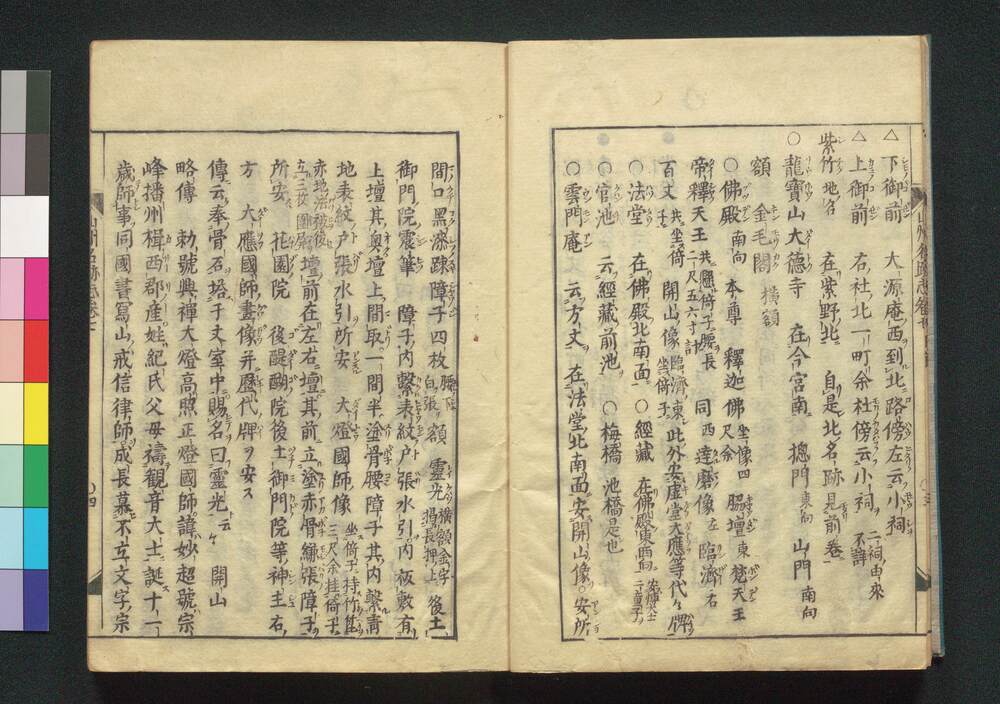 △下御前 大源庵西到北路傍左云小祠
△上御前 右社北一町余杜傍云小祠 二祠由來不詳
紫竹 地名 在紫野北 自是北名跡見前卷
○龍寶山大德寺 在今宮南 摠門 東向 山門 南向
額 金毛閣 橫額
○佛殿 南向 本尊 釋迦佛 坐像四尺余 脇壇 東 梵天王
帝釋天王 共腰長二尺五六寸計 同西 達磨像 左 臨濟 右
百丈 共坐倚子 開山像 臨濟東坐倚子 此外安虛堂大應等代々牌
○法堂 在佛殿北南面 ○經藏 在佛殿東西向
○官池 云經藏前池 ○梅橋 池橋是也
○雲門庵 云方丈 在法堂北南面安開山像 安所
間口黑漆踈障子四枚 腰下白張 額 靈光 橫額金字揭長押上 後土
御門院震筆 障子内繫表紋戶張水引内板敷有
上壇其奧壇上間取一間半塗骨腰障子其内繫青
地表紋戶張水引所安 大燈國師像 坐倚子持竹篦三尺余挂倚子
壇前在左右壇其前立塗赤骨緣張障子
所安 花園院 後醍醐院後土御門院等神主右
方 大應國師畫像并歷代牌ヲ安ス
傳云奉骨石塔于丈室中賜名曰靈光云々 開山
略傳 勅號興禪大燈高照正燈國師諱妙超號宗
峰播州楫西郡產姓紀氏父母禱觀音大士誕十一
歲師事同國書寫山戒信律師成長慕不立文字宗